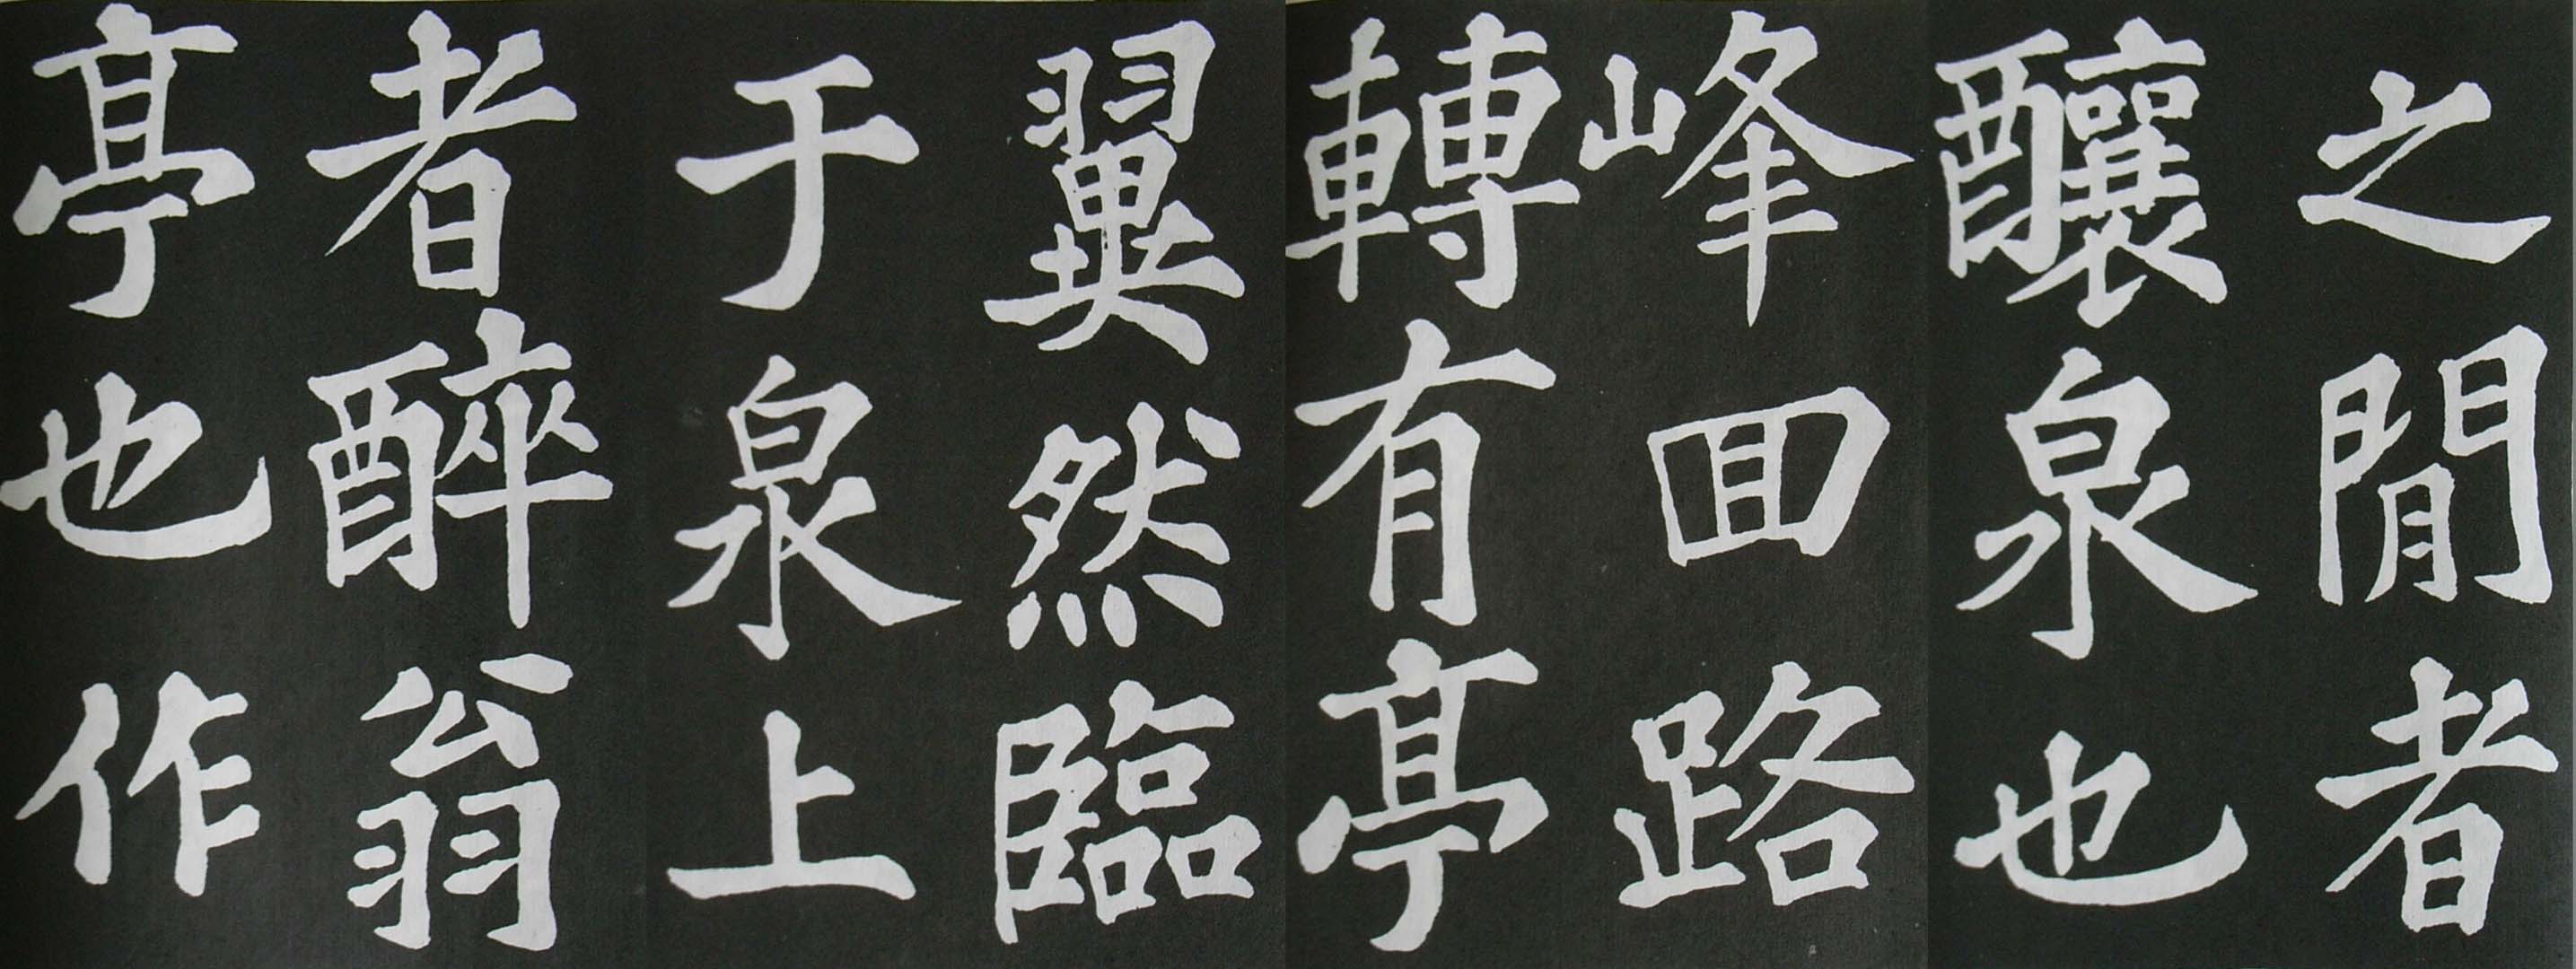 之閒者
釀泉也
峰回路
轉有亭
翼然臨
于泉上
者醉翁
亭也作